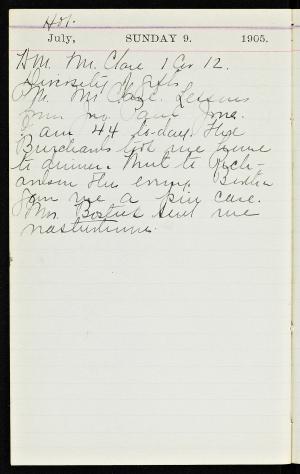 Hot.
July, SUNDAY 9. 1905.
A.M. Mr. Clare 1 Cor 12.
Diversity of gifts
P.M. Mr Clare. Lessons
from
I am 44 to-day. The
Burchams took me home
to dinner. Went to
this evening. Bertha
gave me a pin case.
Mrs. Bostick sent me
nasturtiums.